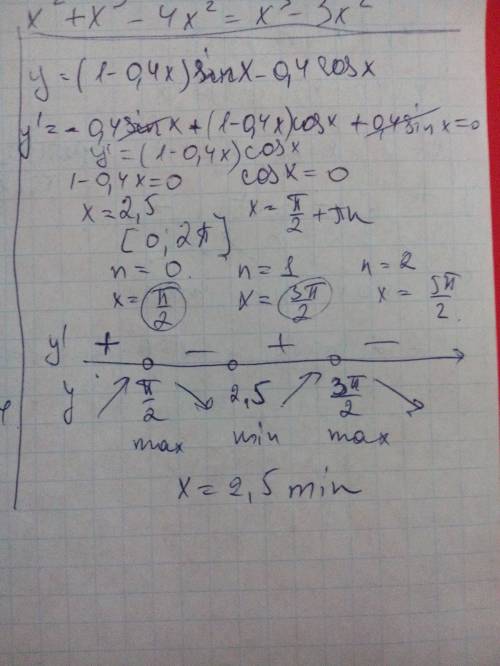 x² + x³ - 4x² = x³ - 3x²
y = (1-0,4x) sinx - 0,4 cosx
y' = - 0,4 sinx + (1-0,4x) cosx + 0,4 sinx = 0
y' = (1-0,4x) cosx
1-0,4x=0 cosx = 0
x = 2,5 x = π/2 + πn
[0; 2π]
n = 0. n = 1 n = 2
x = π/2 x = 3π/2 x = 5π/2.
y' + - + -
y π/2 2,5 3π/2
max min max
x = 2,5 min